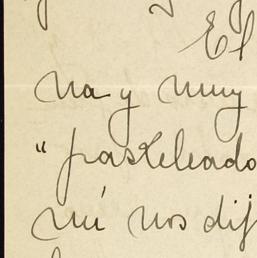 El
na y muy
"pasteleado
mí nos dif